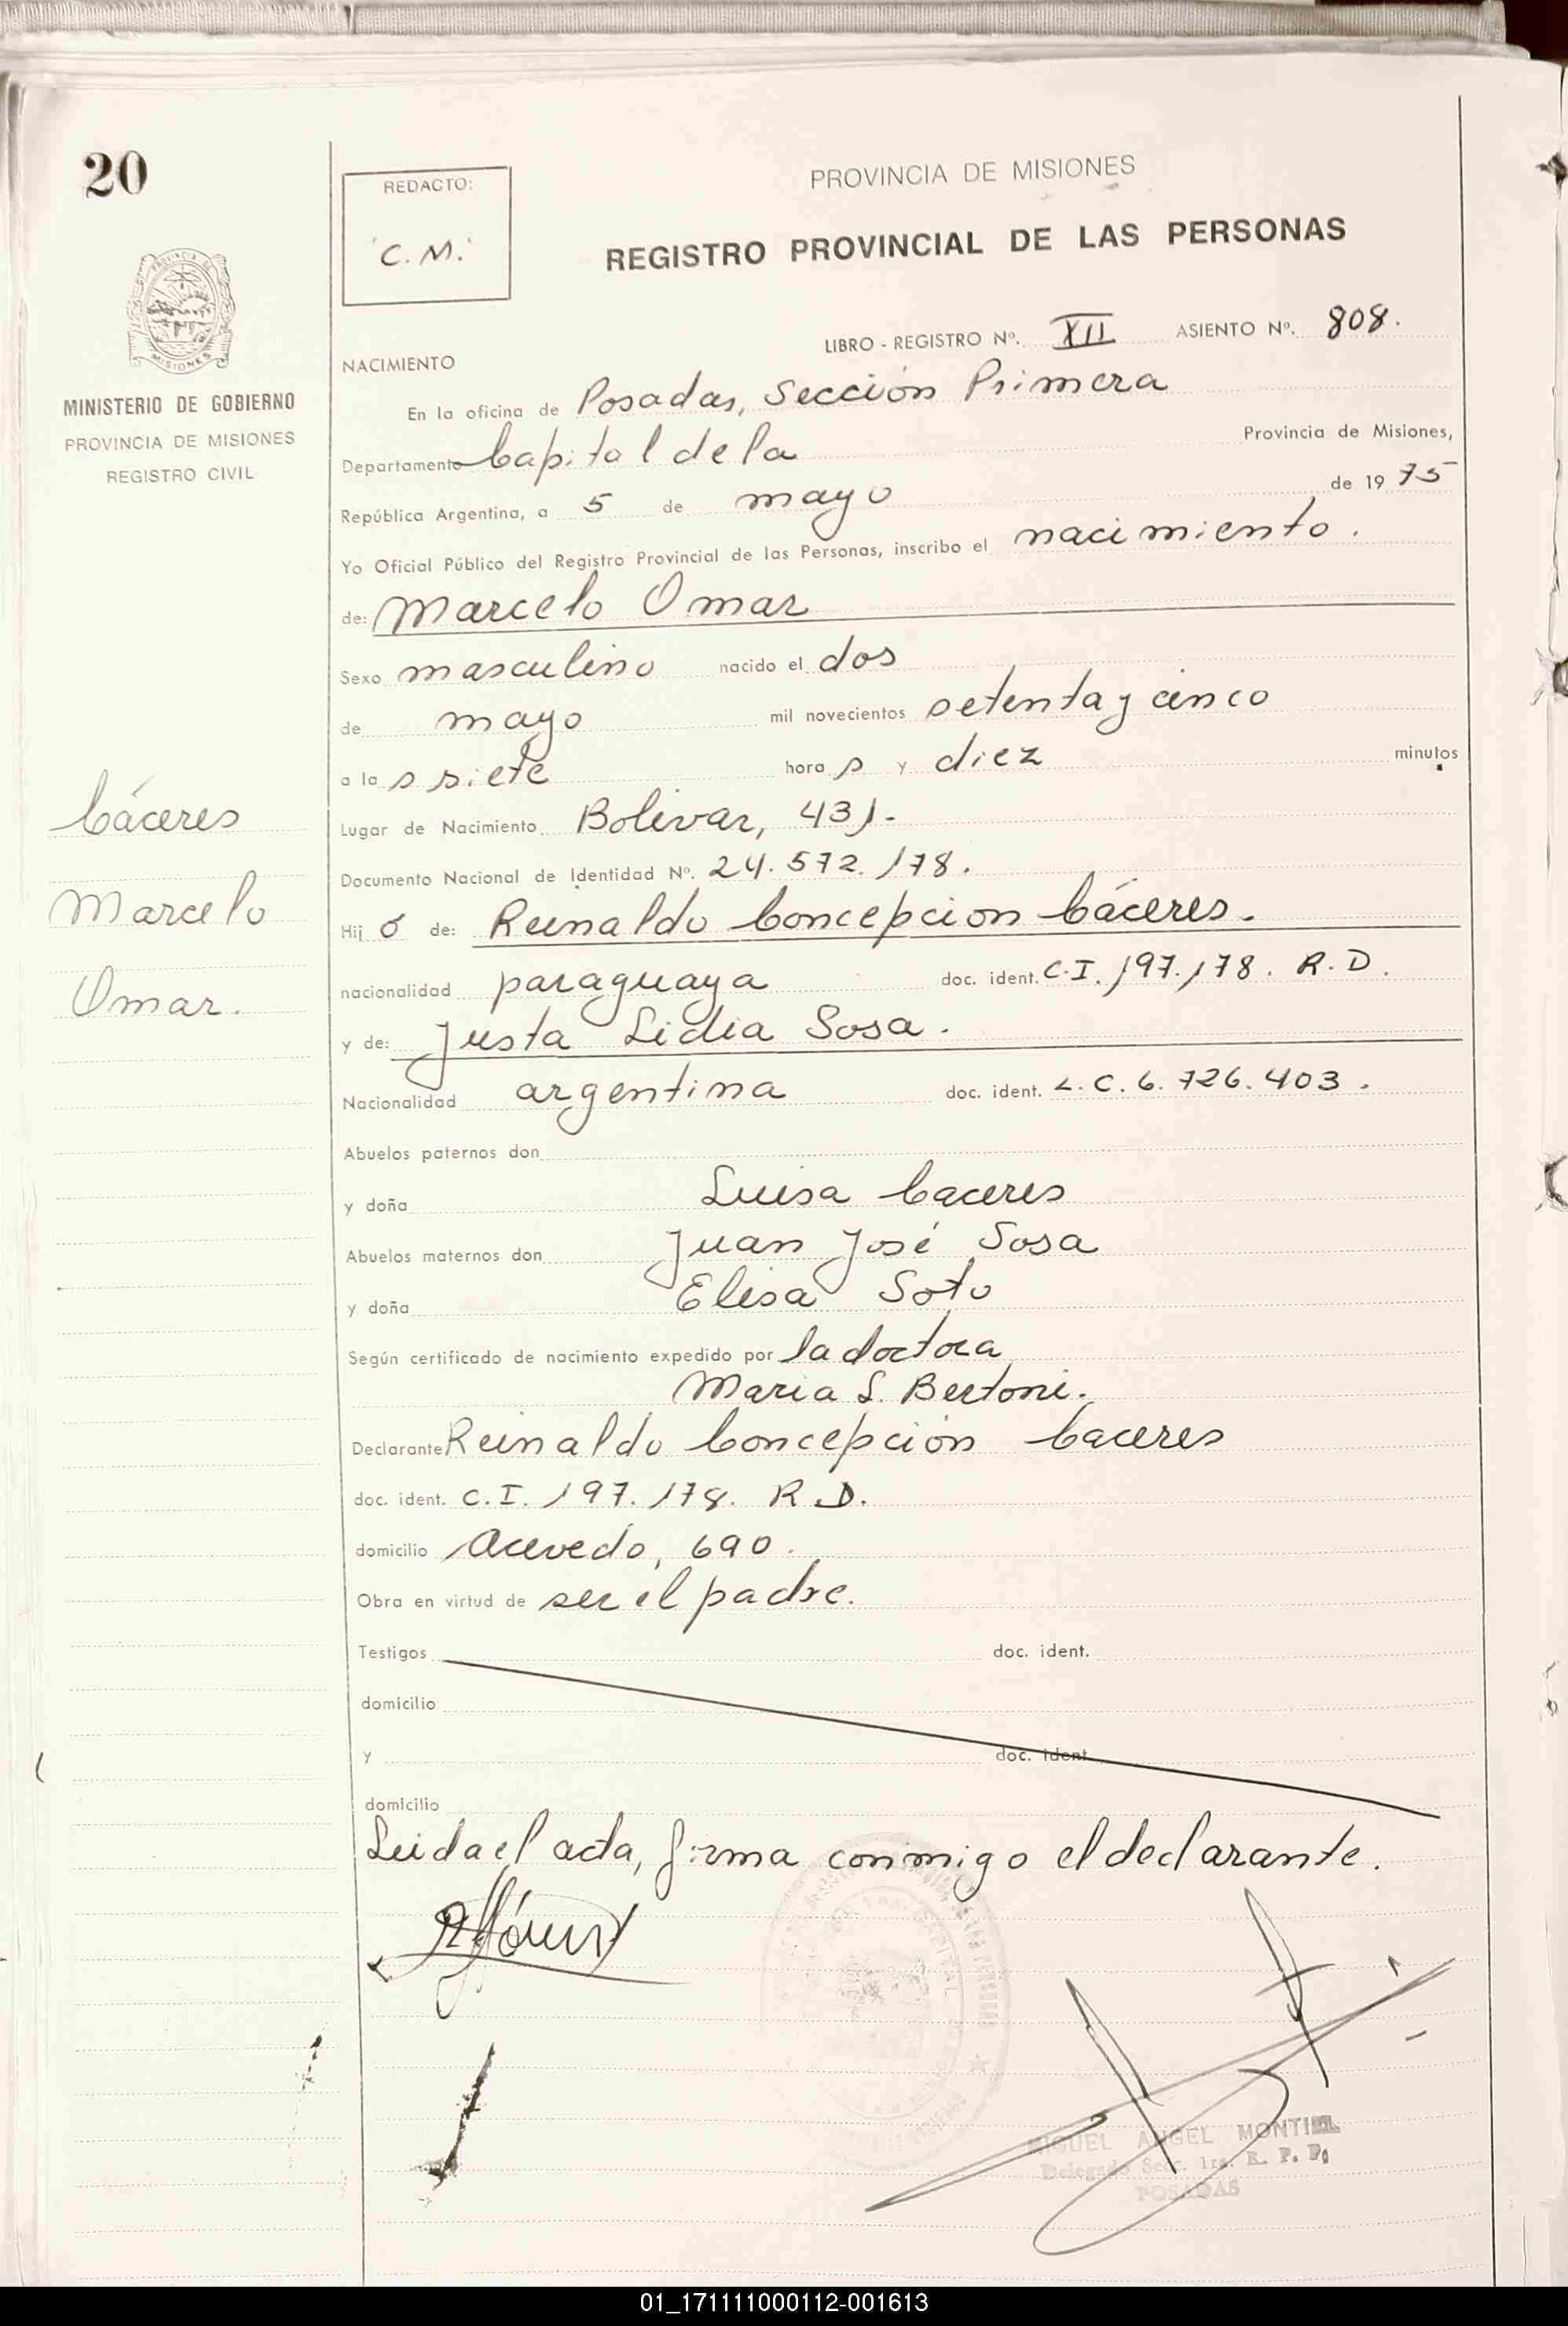 20
REDACTO:
C.M.
PROVINCIA DE MISIONES
REGISTRO PROVINCIAL DE LAS PERSONAS
MINISTERIO DE GOBIERNO
PROVINCIA DE MISIONES
REGISTRO CIVIL
LIBRO - REGISTRO Nº. XII ASIENTO Nº. 808.
NACIMIENTO
En la oficina de Posadas, Sección Primera
Departamento Capital de la Provincia de Misiones,
República Argentina, a 5 de mayo de 1975
Yo Oficial Público del Registro Provincial de las Personas, inscribo el nacimiento.
de: Marcelo Omar
Sexo masculino nacido el dos
de mayo mil novecientos setenta y cinco
a la s siete hora s y diez minutos
Cáceres
Marcelo
Omar.
Lugar de Nacimiento Bolivar, 431.-
Documento Nacional de Identidad Nº. 24.572.178.
Hij o de: Reinaldo Concepcion Cáceres.
nacionalidad paraguaya doc. ident. C.I. 197.178. R.D.
y de: Justa Lidia Sosa.
Nacionalidad argentina doc. ident. L.C. 6.726.403.
Abuelos paternos don
y doña Luisa Caceres
Abuelos maternos don Juan José Sosa
y doña Elisa Soto
Según certificado de nacimiento expedido por la doctora
Maria S. Bertoni.
Declarante Reinaldo Concepción Caceres
doc. ident. C.I. 197.178. R.D.
domicilio Acevedo, 690.
Obra en virtud de ser el padre.
Testigos doc. ident.
domicilio
y doc. ident.
domicilio
Leida el acta, firma conmigo el declarante.
MIGUEL ANGEL MONTIEL
Delegado Secc. 1ra. R. P. P.
POSADAS
01_171111000112-001613